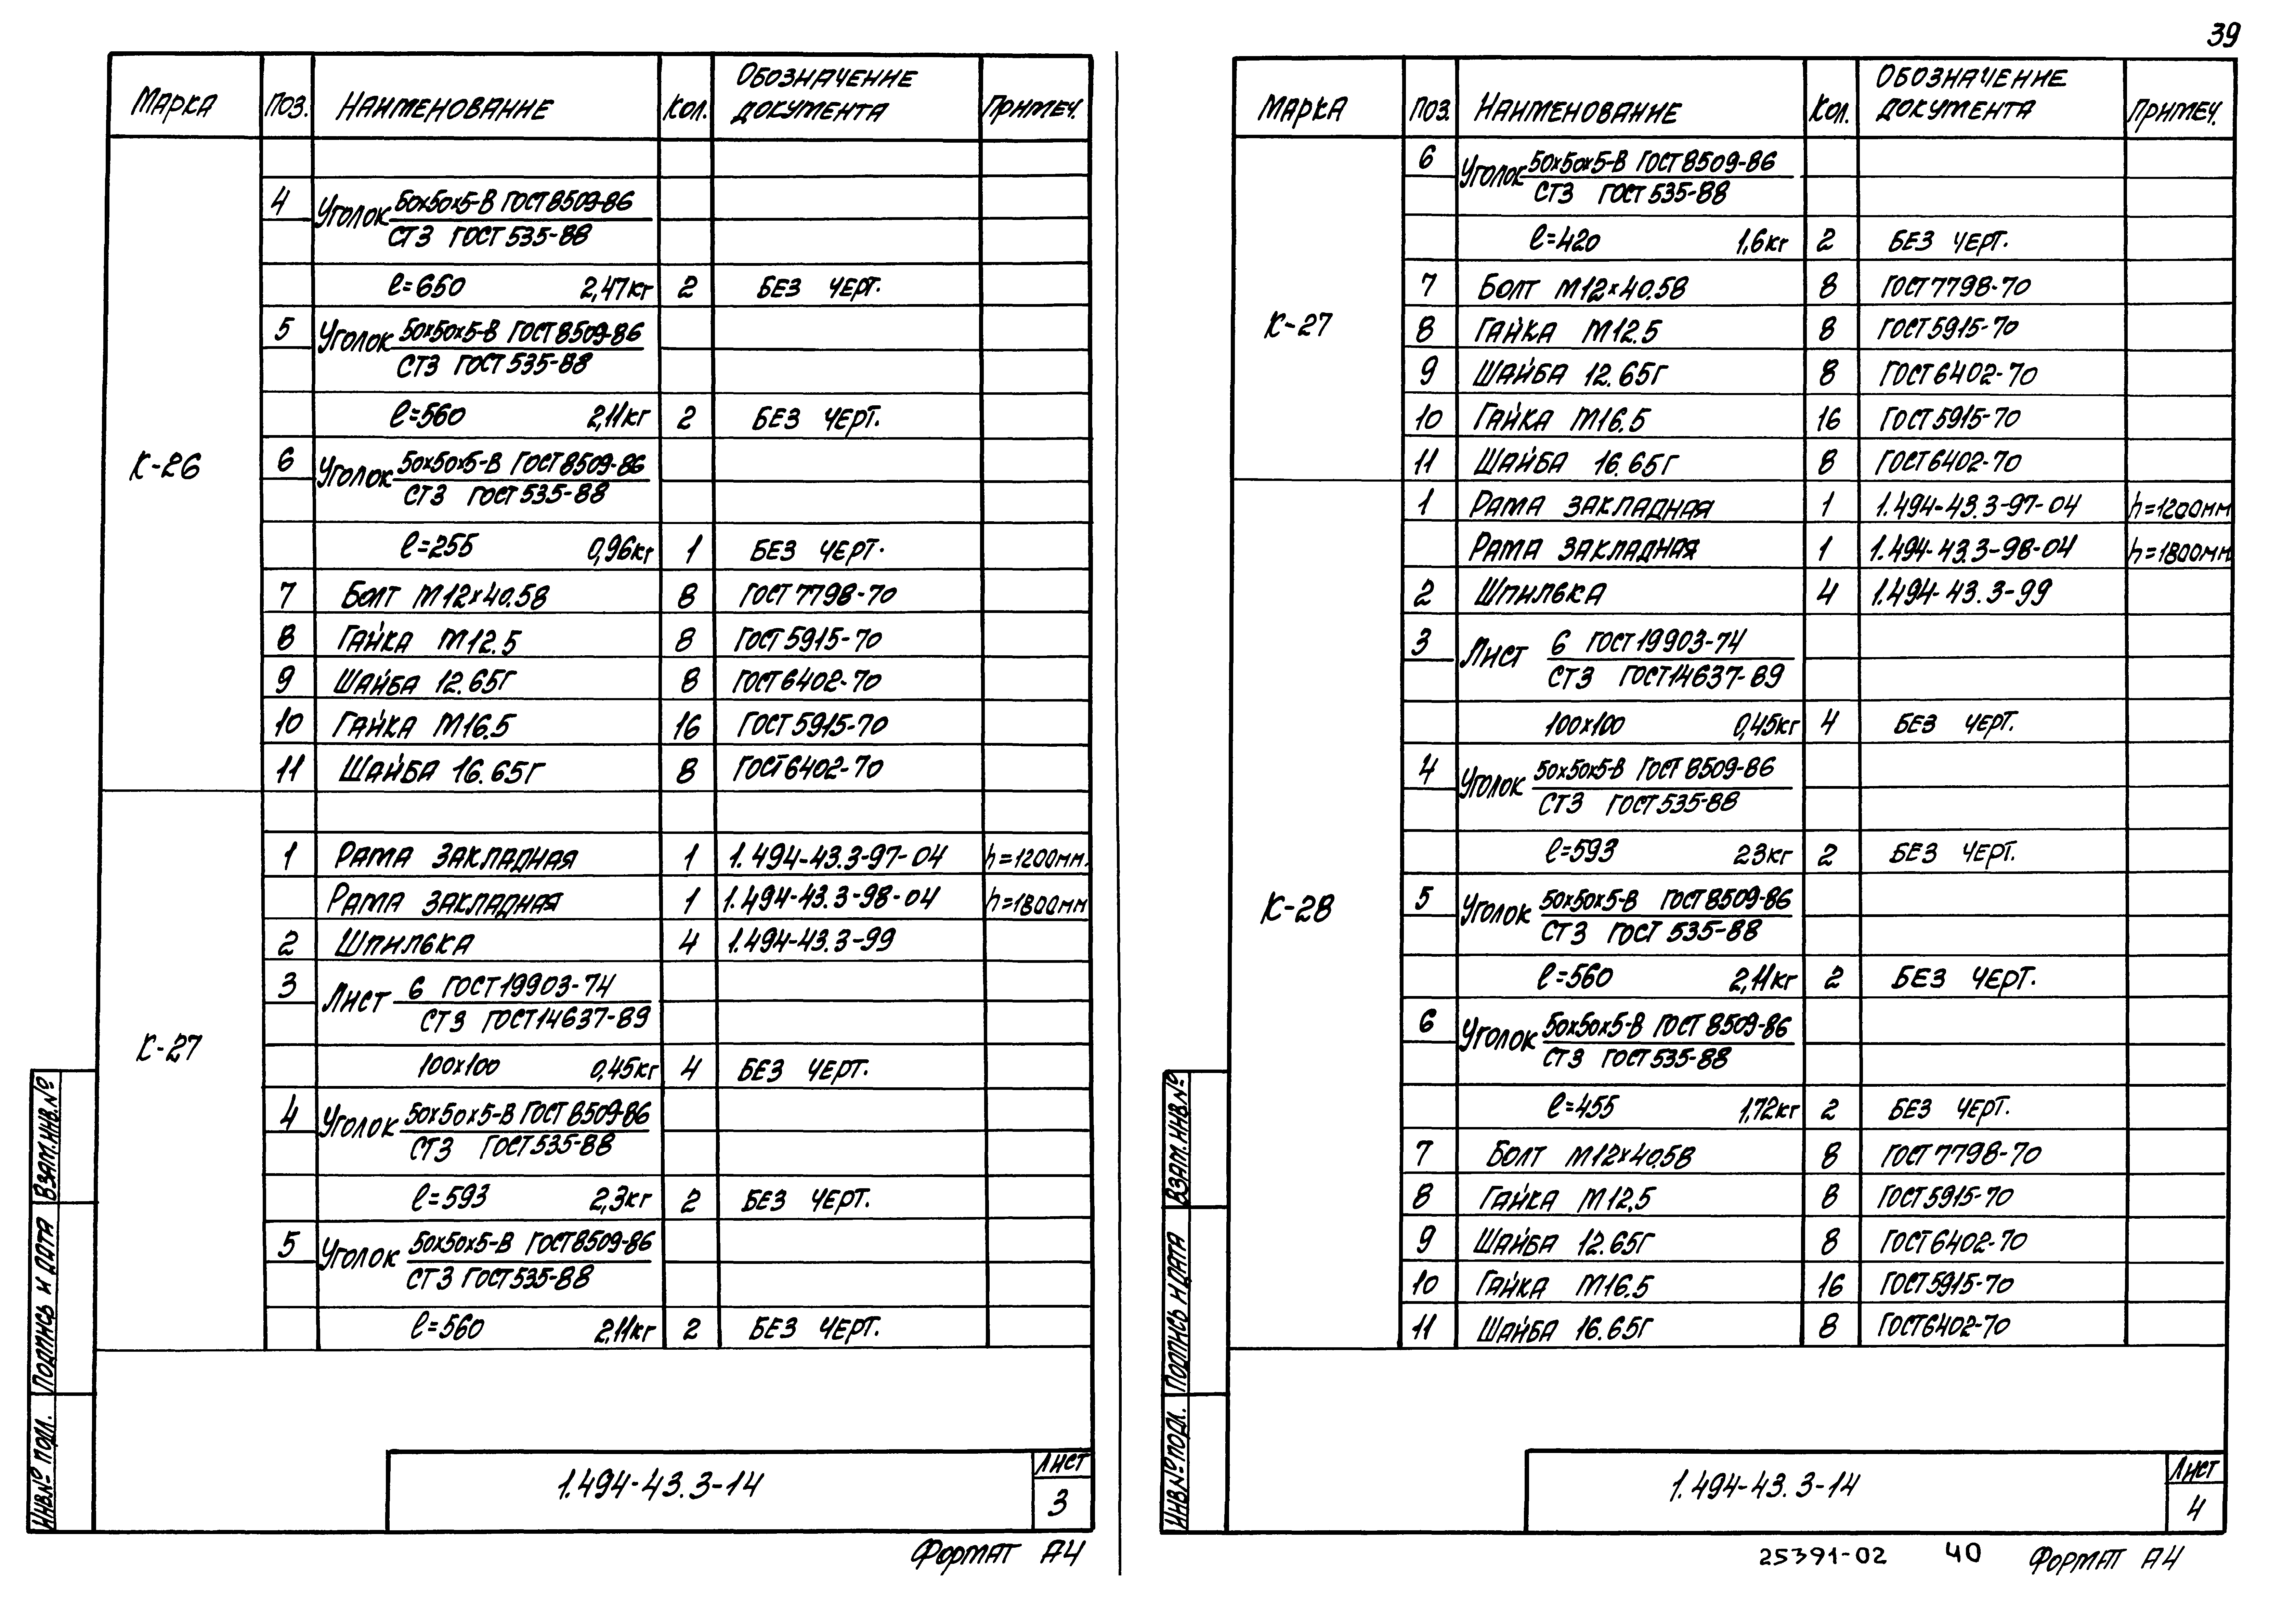 39
Марка Поз. Наименование Кол. Обозначение документа Примеч.
К-26
4 Уголок 50x50x5-В ГОСТ 8509-86
Ст3 ГОСТ 535-88
ℓ=650 2,47кг 2 Без черт.
5 Уголок 50x50x5-В ГОСТ 8509-86
Ст3 ГОСТ 535-88
ℓ=560 2,11кг 2 Без черт.
6 Уголок 50x50x5-В ГОСТ 8509-86
Ст3 ГОСТ 535-88
ℓ=255 0,96кг 1 Без черт.
7 Болт М12x40.58 8 ГОСТ 7798-70
8 Гайка М12.5 8 ГОСТ 5915-70
9 Шайба 12.65Г 8 ГОСТ 6402-70
10 Гайка М16.5 16 ГОСТ 5915-70
11 Шайба 16.65Г 8 ГОСТ 6402-70
К-27
1 Рама закладная 1 1.494-43.3-97-04 h=1200мм.
Рама закладная 1 1.494-43.3-98-04 h=1800мм
2 Шпилька 4 1.494-43.3-99
3 Лист 6 ГОСТ 19903-74
Ст3 ГОСТ 14637-89
100x100 0,45кг 4 Без черт.
4 Уголок 50x50x5-В ГОСТ 8509-86
Ст3 ГОСТ 535-88
ℓ=593 2,3кг 2 Без черт.
5 Уголок 50x50x5-В ГОСТ 8509-86
Ст3 ГОСТ 535-88
ℓ=560 2,11кг 2 Без черт.
Инв.№ подл. Подпись и дата Взам.инв.№
1.494-43.3-14
Лист
3
Формат А4
Марка Поз. Наименование Кол. Обозначение документа Примеч.
К-27
6 Уголок 50x50x5-В ГОСТ 8509-86
Ст3 ГОСТ 535-88
ℓ=420 1,6кг 2 Без черт.
7 Болт М12x40.58 8 ГОСТ 7798-70
8 Гайка М12.5 8 ГОСТ 5915-70
9 Шайба 12.65Г 8 ГОСТ 6402-70
10 Гайка М16.5 16 ГОСТ 5915-70
11 Шайба 16.65Г 8 ГОСТ 6402-70
К-28
1 Рама закладная 1 1.494-43.3-97-04 h=1200мм
Рама закладная 1 1.494-43.3-98-04 h=1800мм
2 Шпилька 4 1.494-43.3-99
3 Лист 6 ГОСТ 19903-74
Ст3 ГОСТ 14637-89
100x100 0,45кг 4 Без черт.
4 Уголок 50x50x5-В ГОСТ 8509-86
Ст3 ГОСТ 535-88
ℓ=593 23кг 2 Без черт.
5 Уголок 50x50x5-В ГОСТ 8509-86
Ст3 ГОСТ 535-88
ℓ=560 2,11кг 2 Без черт.
6 Уголок 50x50x5-В ГОСТ 8509-86
Ст3 ГОСТ 535-88
ℓ=455 1,72кг 2 Без черт.
7 Болт М12x40.58 8 ГОСТ 7798-70
8 Гайка М12,5 8 ГОСТ 5915-70
9 Шайба 12.65Г 8 ГОСТ 6402-70
10 Гайка М16.5 16 ГОСТ 5915-70
11 Шайба 16.65Г 8 ГОСТ 6402-70
Инв.№ подл. Подпись и дата Взам.инв.№
1.494-43.3-14
Лист
4
25391-02 40 Формат А4